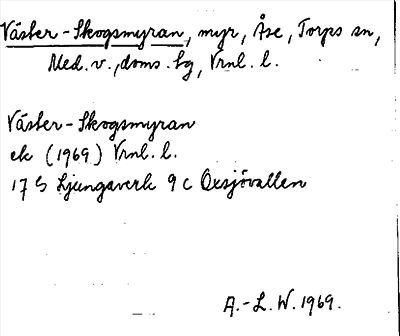 Väster-Skogsmyran, myr, Åse, Torps sn,
Med. v., doms. tg, Vrnl. l.
Väster-Skogsmyran
ek (1969) Vrnl. l.
17 G Ljungaverk 9 c Oxsjövallen
A.-L. W. 1969.